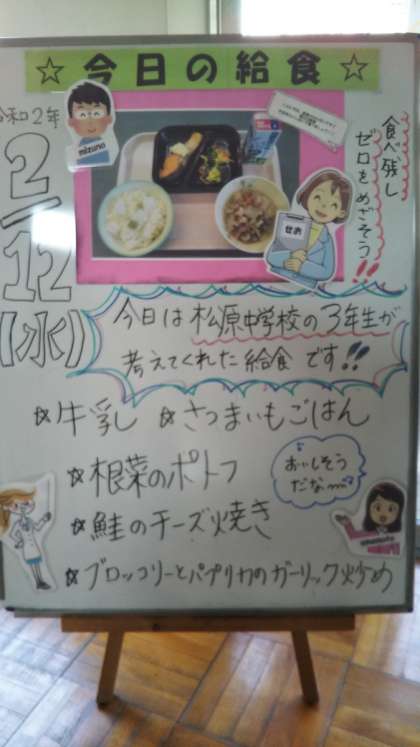 ☆今日の給食☆
令和2年
2/12
(水)
mizuno
食べ残し
ゼロをめざそう!!
せお
今日は松原中学校の3年生が
考えてくれた給食です!!
☆牛乳 ☆さつまいもごはん
☆根菜のポトフ
おいしそう
だな〜
☆鮭のチーズ焼き
☆ブロッコリーとパプリカのガーリック炒め